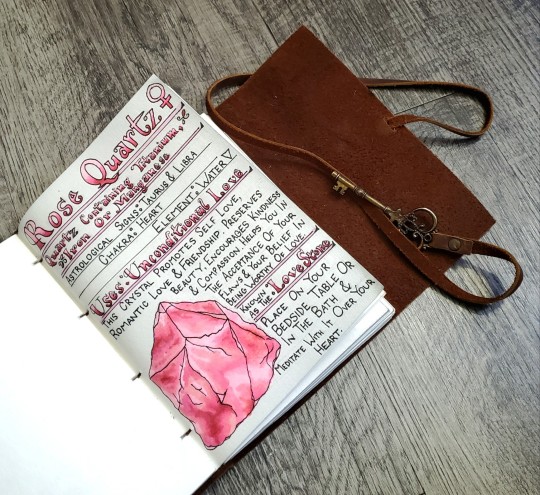 Rose Quartz ♀
Quartz Containing Titanium,
Iron Or Manganese
Astrological Signs: Taurus & Libra
Chakra: Heart Element: Water ▽
Uses: "Unconditional Love"
This Crystal Promotes Self Love,
Romantic Love & Friendship. Preserves
Beauty. Encourages Kindness
& Compassion. Helps You In
The Acceptance Of Your
Flaws & Your Belief In
Being Worth Of Love.
Known
As The "Love Stone"
Place On Your
Bedside Table Or
In The Bath &
Meditate With It Over Your
Heart.